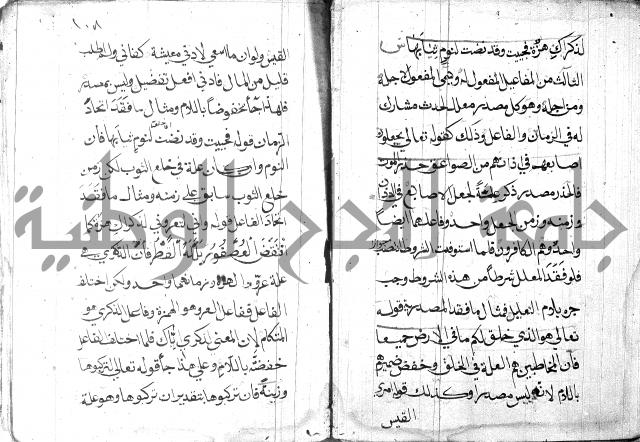 لذكراك هزة فجئت وقد نضت لنوم ثيابها
الثالث من المفاعيل المفعول له ويسمى المفعول لاجله
ومن اجله وهو كل مصدر معلل لحدث مشارك
له في الزمان والفاعل وذلك كقوله تعالى يجعلون
اصابعهم في اذانهم من الصواعق حذر الموت
فالحذر مصدر ذكر علة لجعل الاصابع في الاذان
وزمنه وزمن الجعل واحد وفاعلهما ايضا
واحد وهم الكافرون فلما استوفت الشروط انتصب
فلو فقد المعلل شرطا من هذه الشروط وجب
جره بلام التعليل فمثال ما فقد المصدرية قوله
تعالى هو الذي خلق لكم ما في الارض جميعا
فان المخاطبين هم العلة في الخلق وخفض ضميرهم
باللام لانه ليس مصدر وكذلك قول امرئ
القيس
١٠٨
القيس ولو ان ما اسعى لادنى معيشة كفاني ولم اطلب
قليل من المال فادنى افعل تفضيل وليس بمصدر
فلهذا جاء مخفوضا باللام ومثال ما فقد اتحاد
الزمان قوله فجئت وقد نضت لنوم ثيابها فان
النوم وان كان علة في خلع الثوب لكن زمن
خلع الثوب سابق على زمنه ومثال ما فقد
اتحاد الفاعل قوله واني لتعروني لذكراك هزة كما
انتفض العصفور بلله القطر فان الذكرى هي
علة عرو الهزة وزمانهما واحد ولكن اختلف
الفاعل ففاعل العرو هو الهزة وفاعل الذكرى هو
المتكلم لان المعنى لذكرى اياك فلما اختلف الفاعل
خفضته باللام وعلى هذا جاء قوله تعالى لتركبوها
وزينة فان تركبوها بتقدير ان تركبوها وهو علة
جامعة النجاح الوطنية